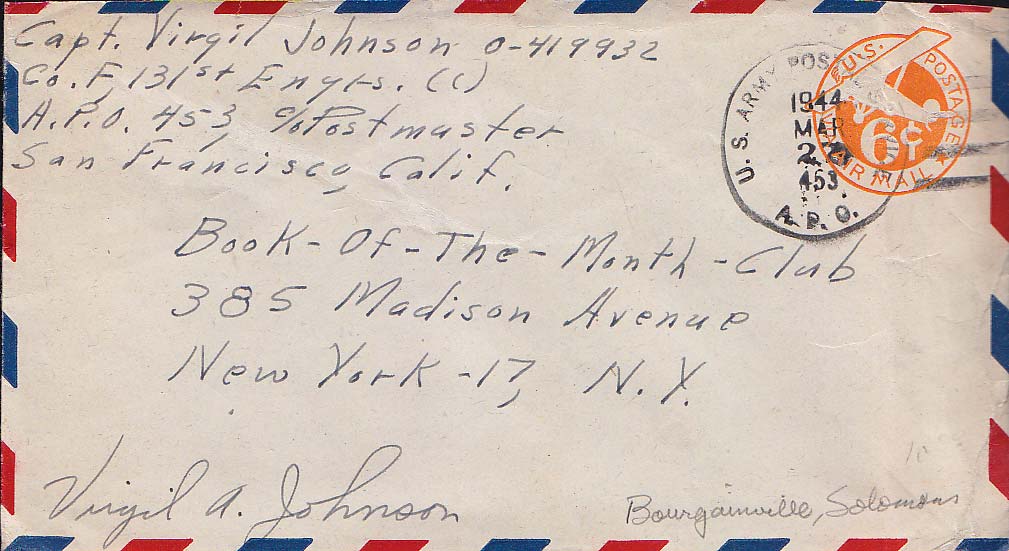 Capt. Virgil Johnson O-419932
Co. F, 131st Engrs. (C)
A.P.O. 453, c/o Postmaster
San Francisco, Calif.
U.S. ARMY POSTAL
1944
MAR
453
A.P.O.
U.S. POSTAGE
6¢
AIR MAIL
Book-Of-The-Month-Club
385 Madison Avenue
New York-17, N.Y.
Virgil A. Johnson
Bourgainville, Solomons